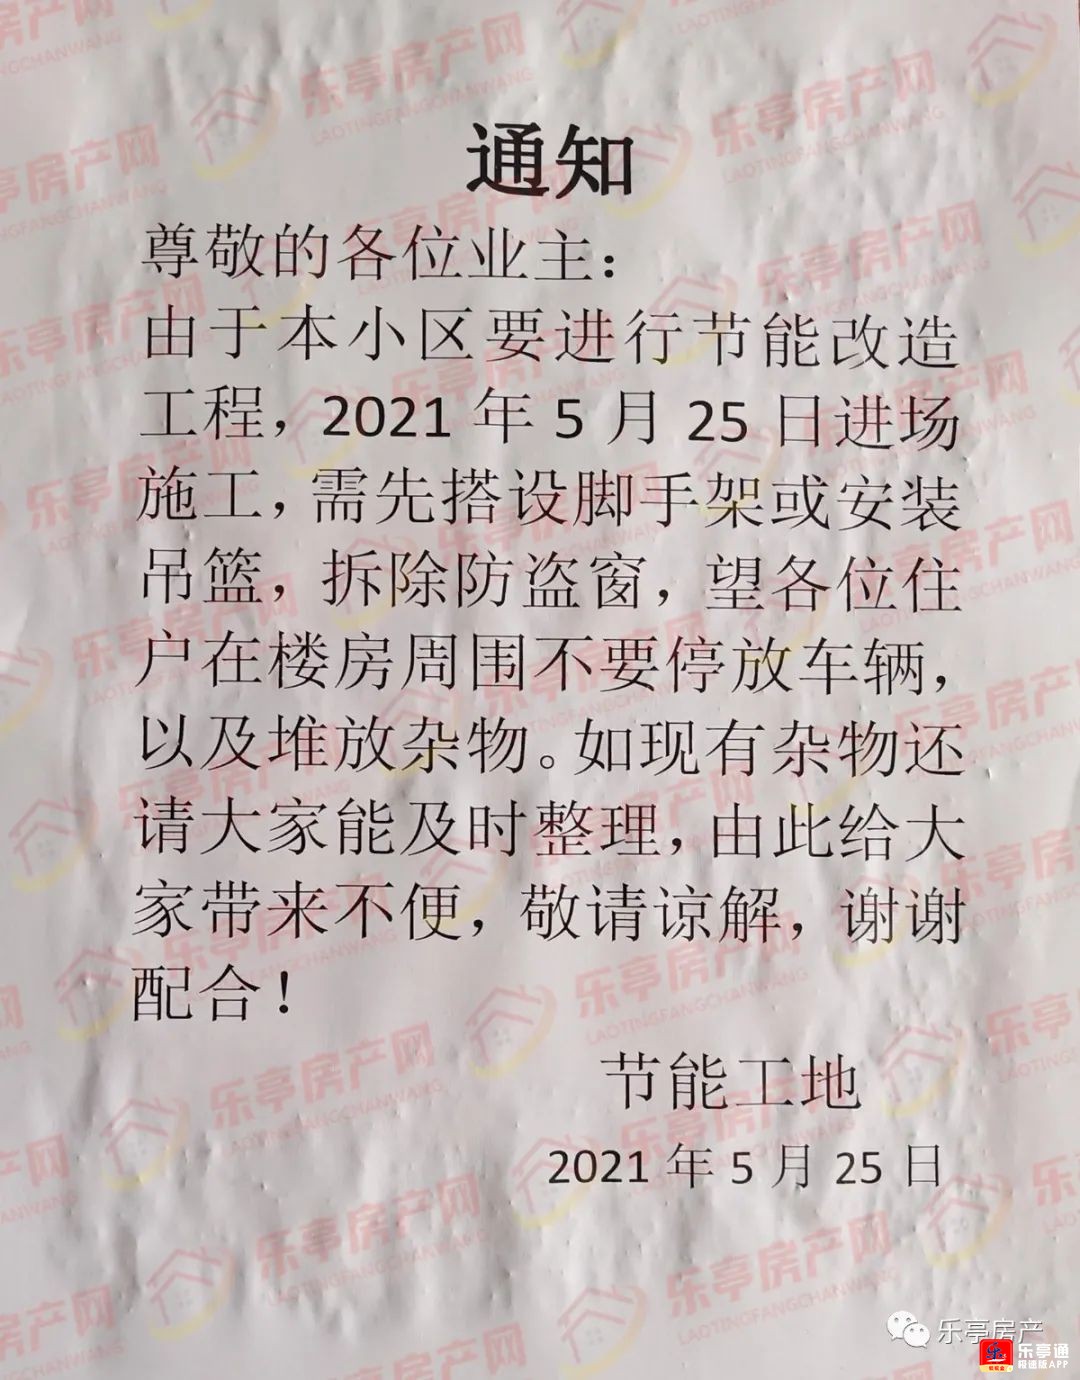 通知
尊敬的各位业主：
由于本小区要进行节能改造
工程，2021年5月25日进场
施工，需先搭设脚手架或安装
吊篮，拆除防盗窗，望各位住
户在楼房周围不要停放车辆，
以及堆放杂物。如现有杂物还
请大家能及时整理，由此给大
家带来不便，敬请谅解，谢谢
配合！
节能工地
2021年5月25日
乐亭房产网
LAOTINGFANGCHANWANG
乐亭房产
乐亭通
极速版APP